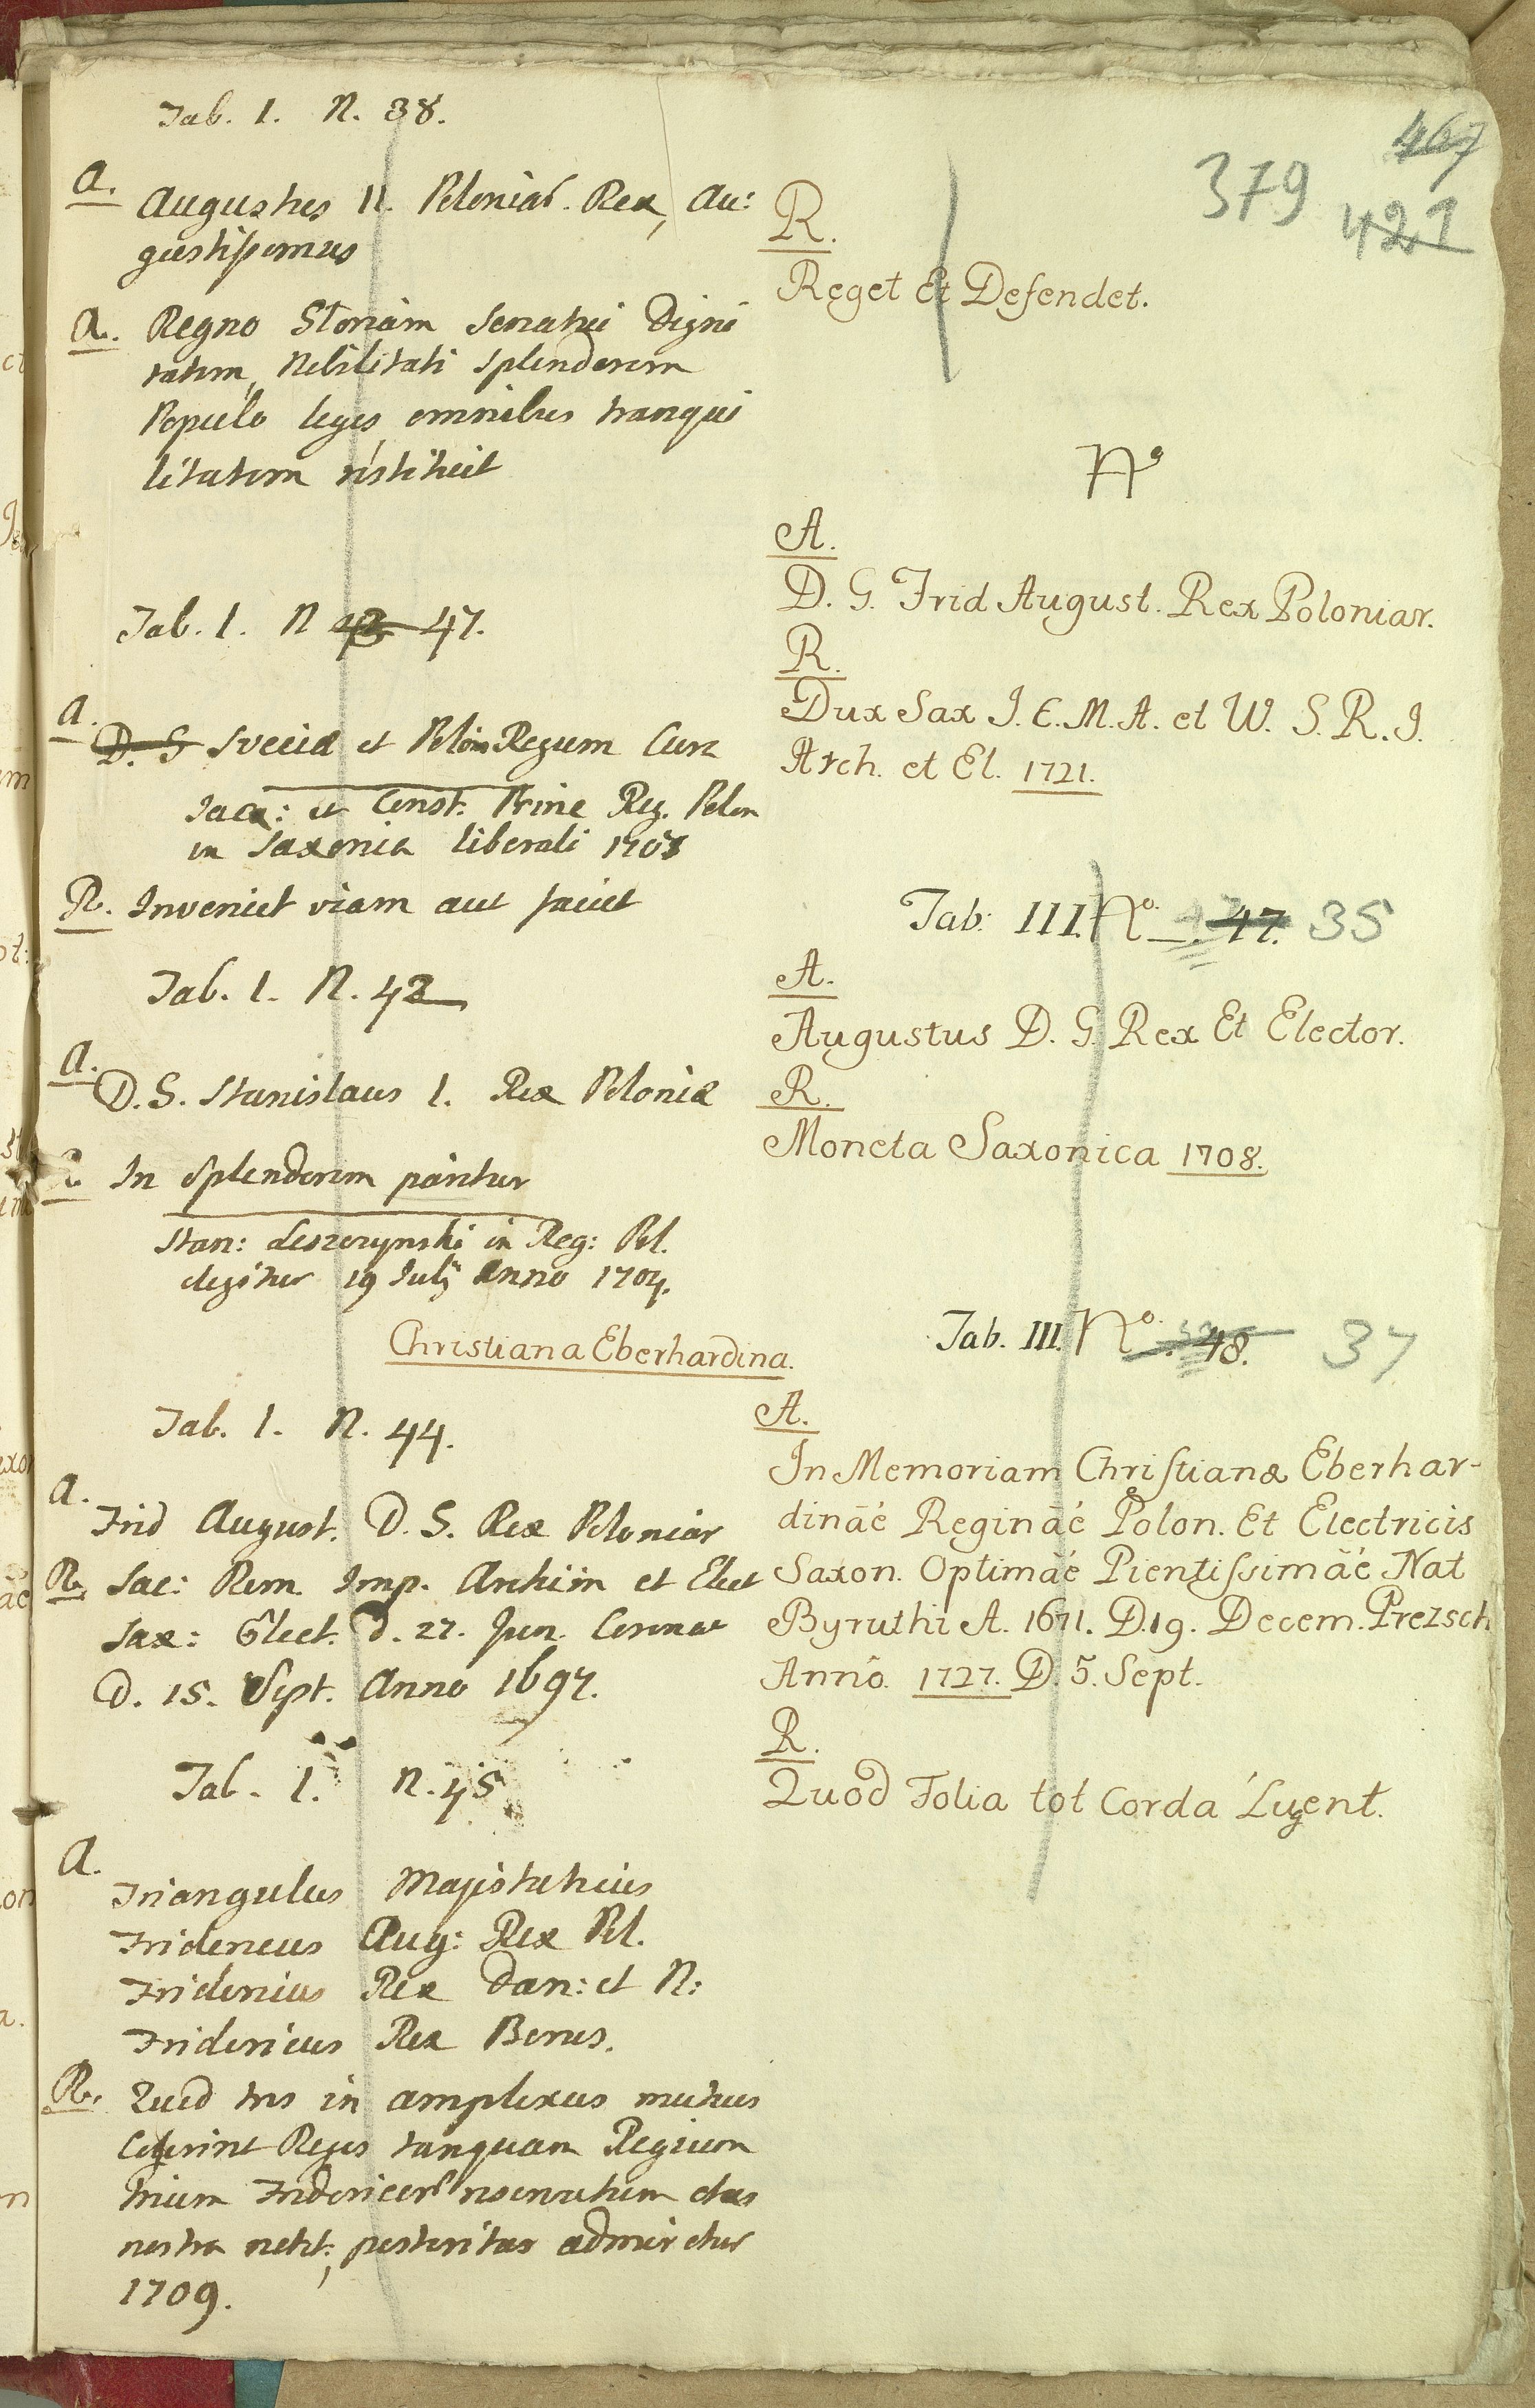 Tab. I. N. 38.
A.
Augustus II. Poloniar. Rex, Au:
gustissimus
R. Regno Gloriam Senatui Digni
tatem, Nobilitati Splendorem
Populo leges, omnibus tranqui
litatem restituit
Tab. I. N 43 47.
A.
D. G Sveciæ et Polon Regum Cura
Jaco: et Const. Prine Reg. Polon
in Saxonia liberati 1708
R. Inveniet viam aut faciet
Tab. I. N. 42
A.
D. G. Stanislaus I. Rex Poloniæ
R. In Splendorem paritur
Stan: Leszczynski in Reg: Pol.
elegitur 19 Julij Anno 1704.
Christiana Eberhardina.
Tab. I. N. 44.
A.
Frid August. D. G. Rex Poloniar
R. Sac: Rom. Imp. Archim et Elect
Sax: Elect. d. 27. Jun. Coronat
D. 15. Sept. Anno 1697.
Tab. I. N. 45
A.
Triangulus Majestaticus
Fridericus Aug: Rex Pol.
Fridericus Rex Dan: et N:
Fridericus Rex Borus.
R. Quod tres in amplexus mutuus
Reges tanquam Regium
trium Fridericor
nostra posteritas admiretur
1709.
467
379
421
R.
Reget Et Defendet.
Nº
A.
D. G. Frid August. Rex Poloniar.
R.
Dux Sax J. C. M. A. et W. S. R. J.
Arch. et El. 1721.
Tab: III. Nº. 47. 35
A.
Augustus D. G. Rex Et Elector.
R.
Moneta Saxonica 1708.
Tab. III. Nº. 48. 37
A.
In Memoriam Christianæ Eberhar-
dinae Reginae Polon. Et Electricis
Saxon. Optimae Pientissimae Nat
Byruthi A. 1671. D.19. Decem. Prezsch
Anno. 1727. D. 5. Sept.
R.
Quod Folia tot Corda Lugent.